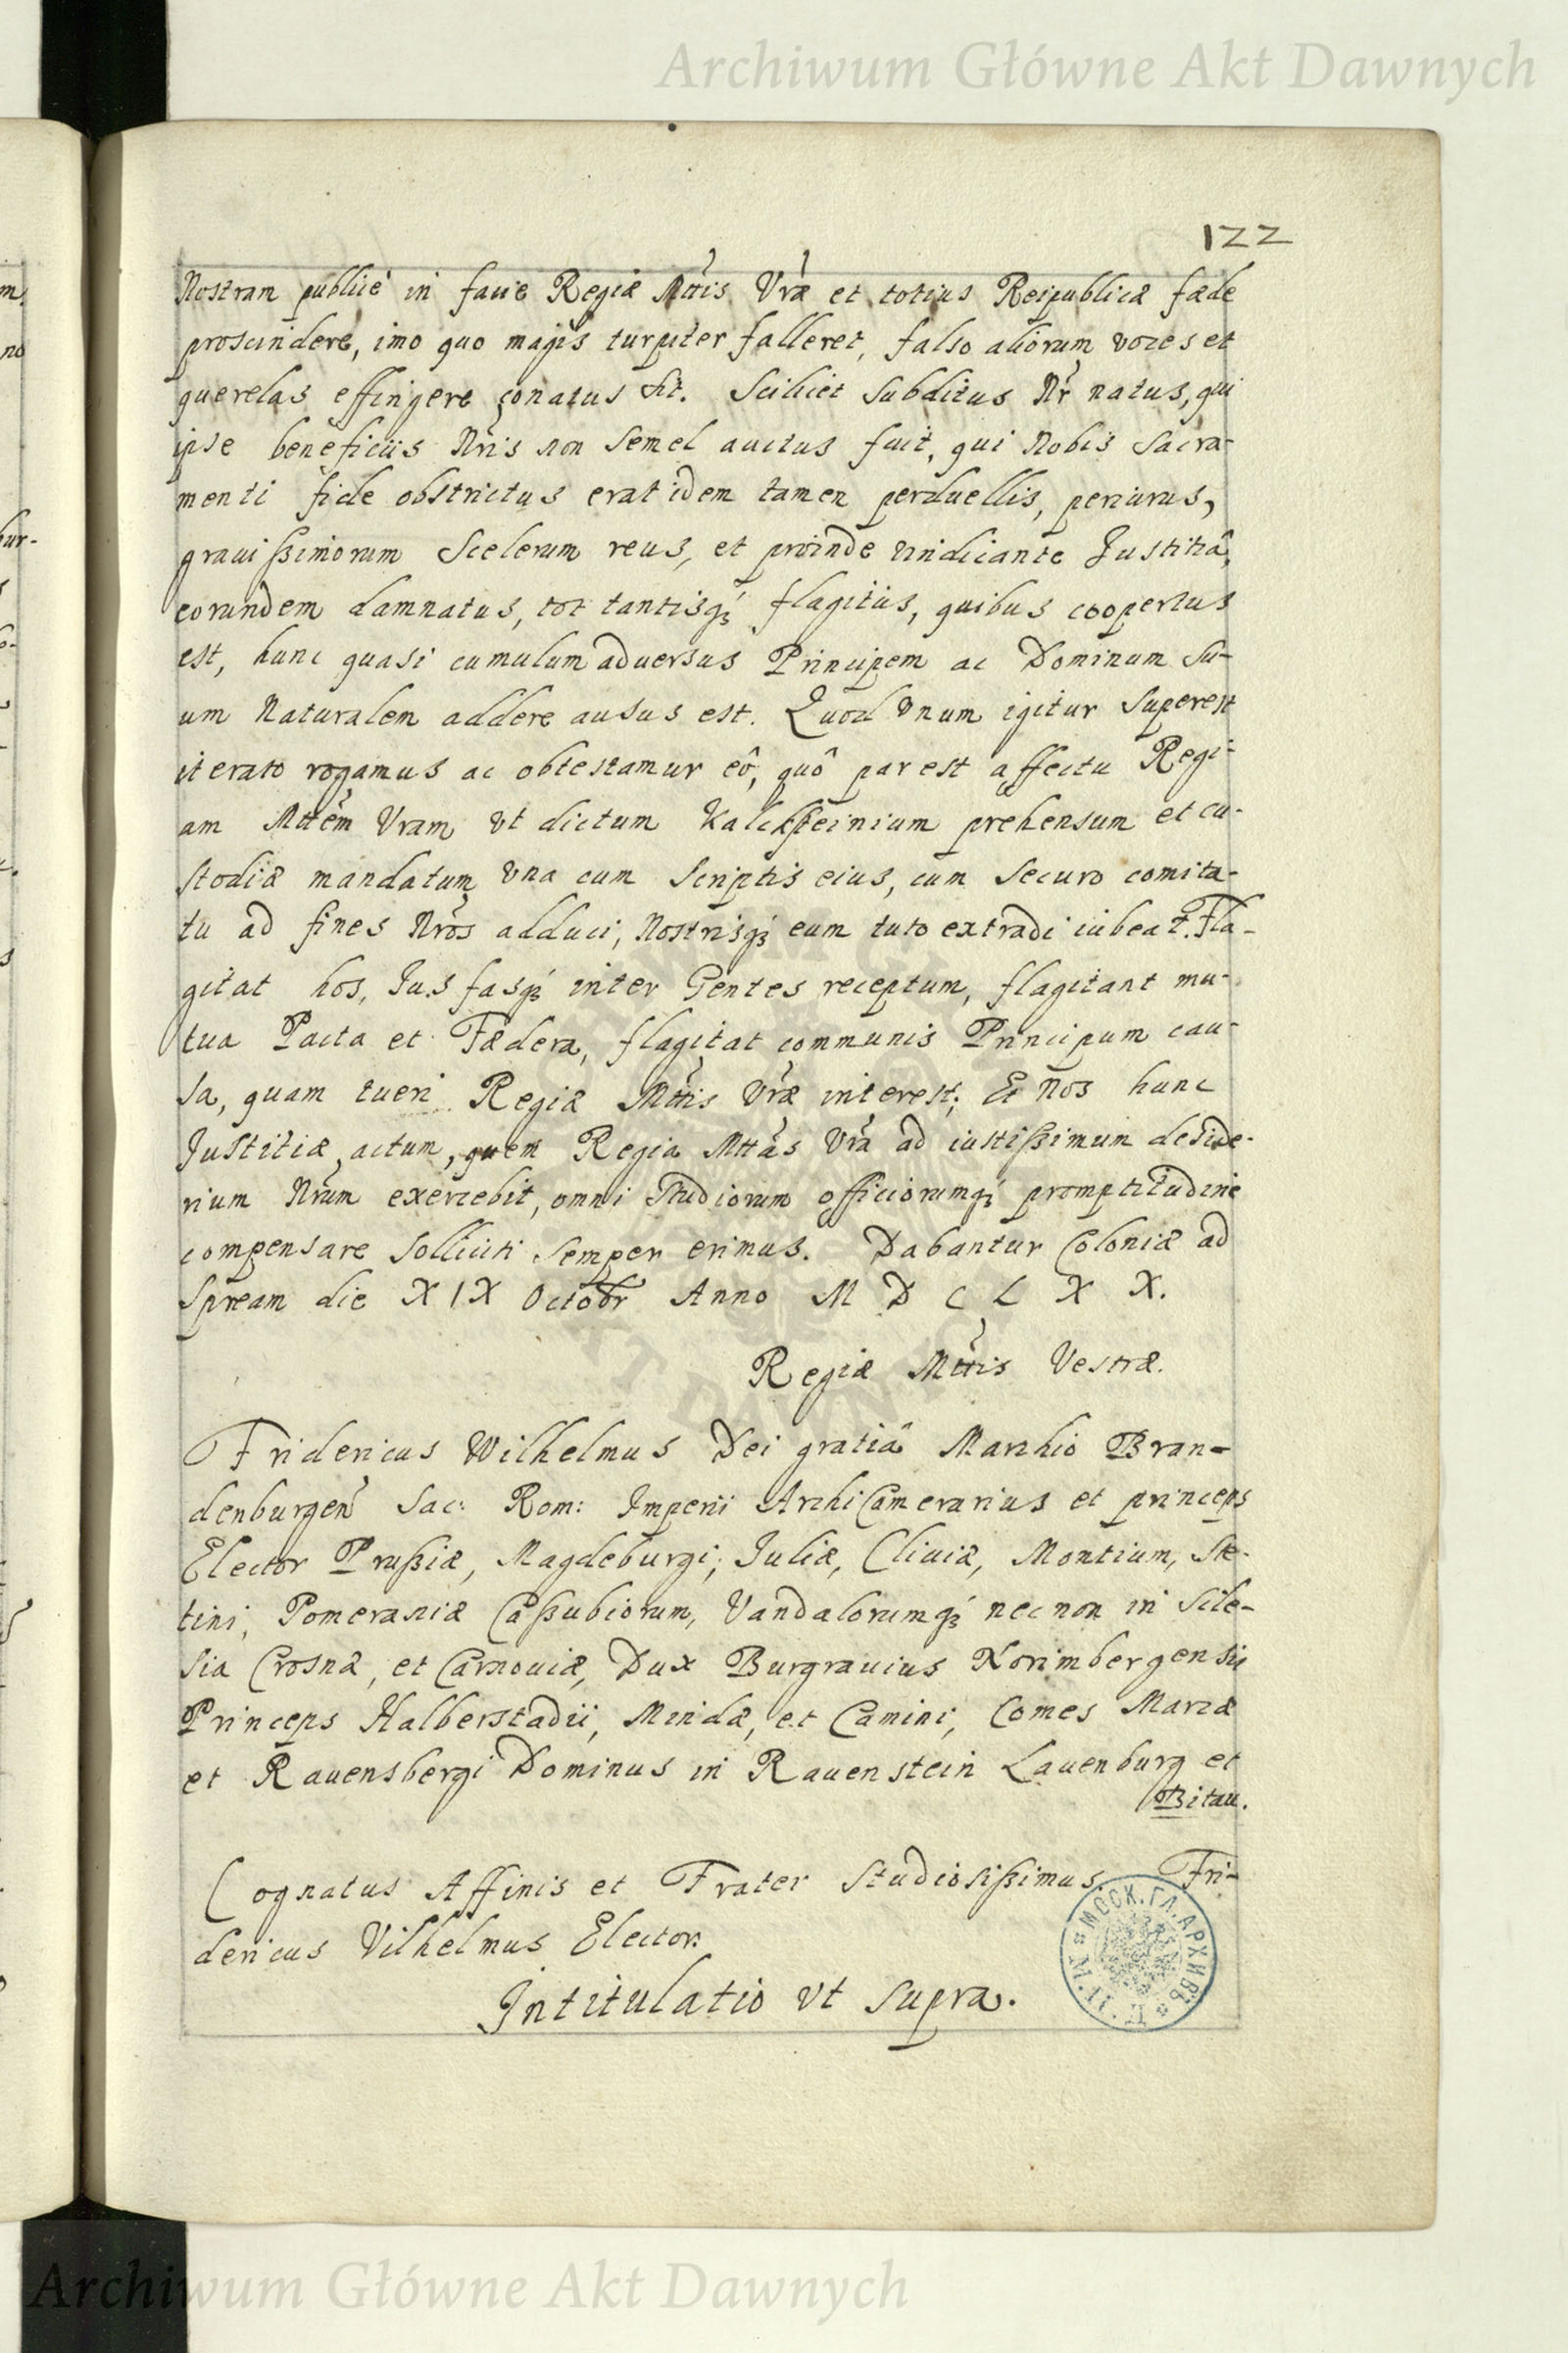 Archiwum Główne Akt Dawnych
122
Nostram publicè in facie Regiæ Mttis Vræ et totius Reipublicæ fæde
proscindere, imo quo magis turpiter falleret, falso aliorum voces et
querelas effingere conatus sit. Scilicet Subditus Nr natus, qui
ipse beneficiis Nris non semel auctus fuit, qui Nobis Sacra-
menti fide obstrictus erat idem tamen perduellis, periurus,
grauißimorum Scelerum reus, et proinde vindicante Justitiâ,
eorundem damnatus, tot tantisq3 flagitiis, quibus coopertus
est, hunc quasi cumulum aduersus Principem ac Dominum Su-
um Naturalem addere ausus est. Quod vnum igitur Superest
iterato rogamus ac obtestamur eô, quô par est affectu Regi-
am Mttem Vram vt dictum Kalcksteinium prehensum et cu-
stodiæ mandatum vna cum Scriptis eius, cum Securo comita-
tu ad fines Nros adduci, Nostrisq3 eum tuto extradi iubeat. Fla-
gitat hos, Jus fasq3 inter Gentes receptum, flagitant mu-
tua Pacta et Fædera, flagitat communis Principum cau-
sa, quam tueri Regiæ Mttis Vræ interest; Et Nos hunc
Justitiæ actum, quem Regia Mttas Vra ad iustißimum deside-
rium Nrum exercebit, omni Studiorum officiorumq3 promptitudine
compensare Solliciti Semper erimus. Dabantur Coloniæ ad
Spream die XIX Octobr Anno M D C L X X.
Regiæ Mttis Vestræ.
Fridericus Wilhelmus Dei gratiâ Marchio Bran-
denburgen Sac: Rom: Imperii ArchiCamerarius et princeps
Elector Prußiæ, Magdeburgi, Juliæ, Cliuiæ, Montium, Ste-
tini, Pomeraniæ Caßubiorum, Vandalorumq3 nec non in Sile-
sia Crosnæ, et Carnouiæ, Dux Burgrauius Norimbergensis
Princeps Halberstadii, Mindæ, et Camini, Comes Marcæ
et Rauensbergi Dominus in Rauenstein Lauenburg et
Bitau.
Cognatus Affinis et Frater Studiosißimus. Fri-
dericus Vilhelmus Elector.
Intitulatio vt supra.
МОСК. ГЛ. АРХИВЪ
Archiwum Główne Akt Dawnych